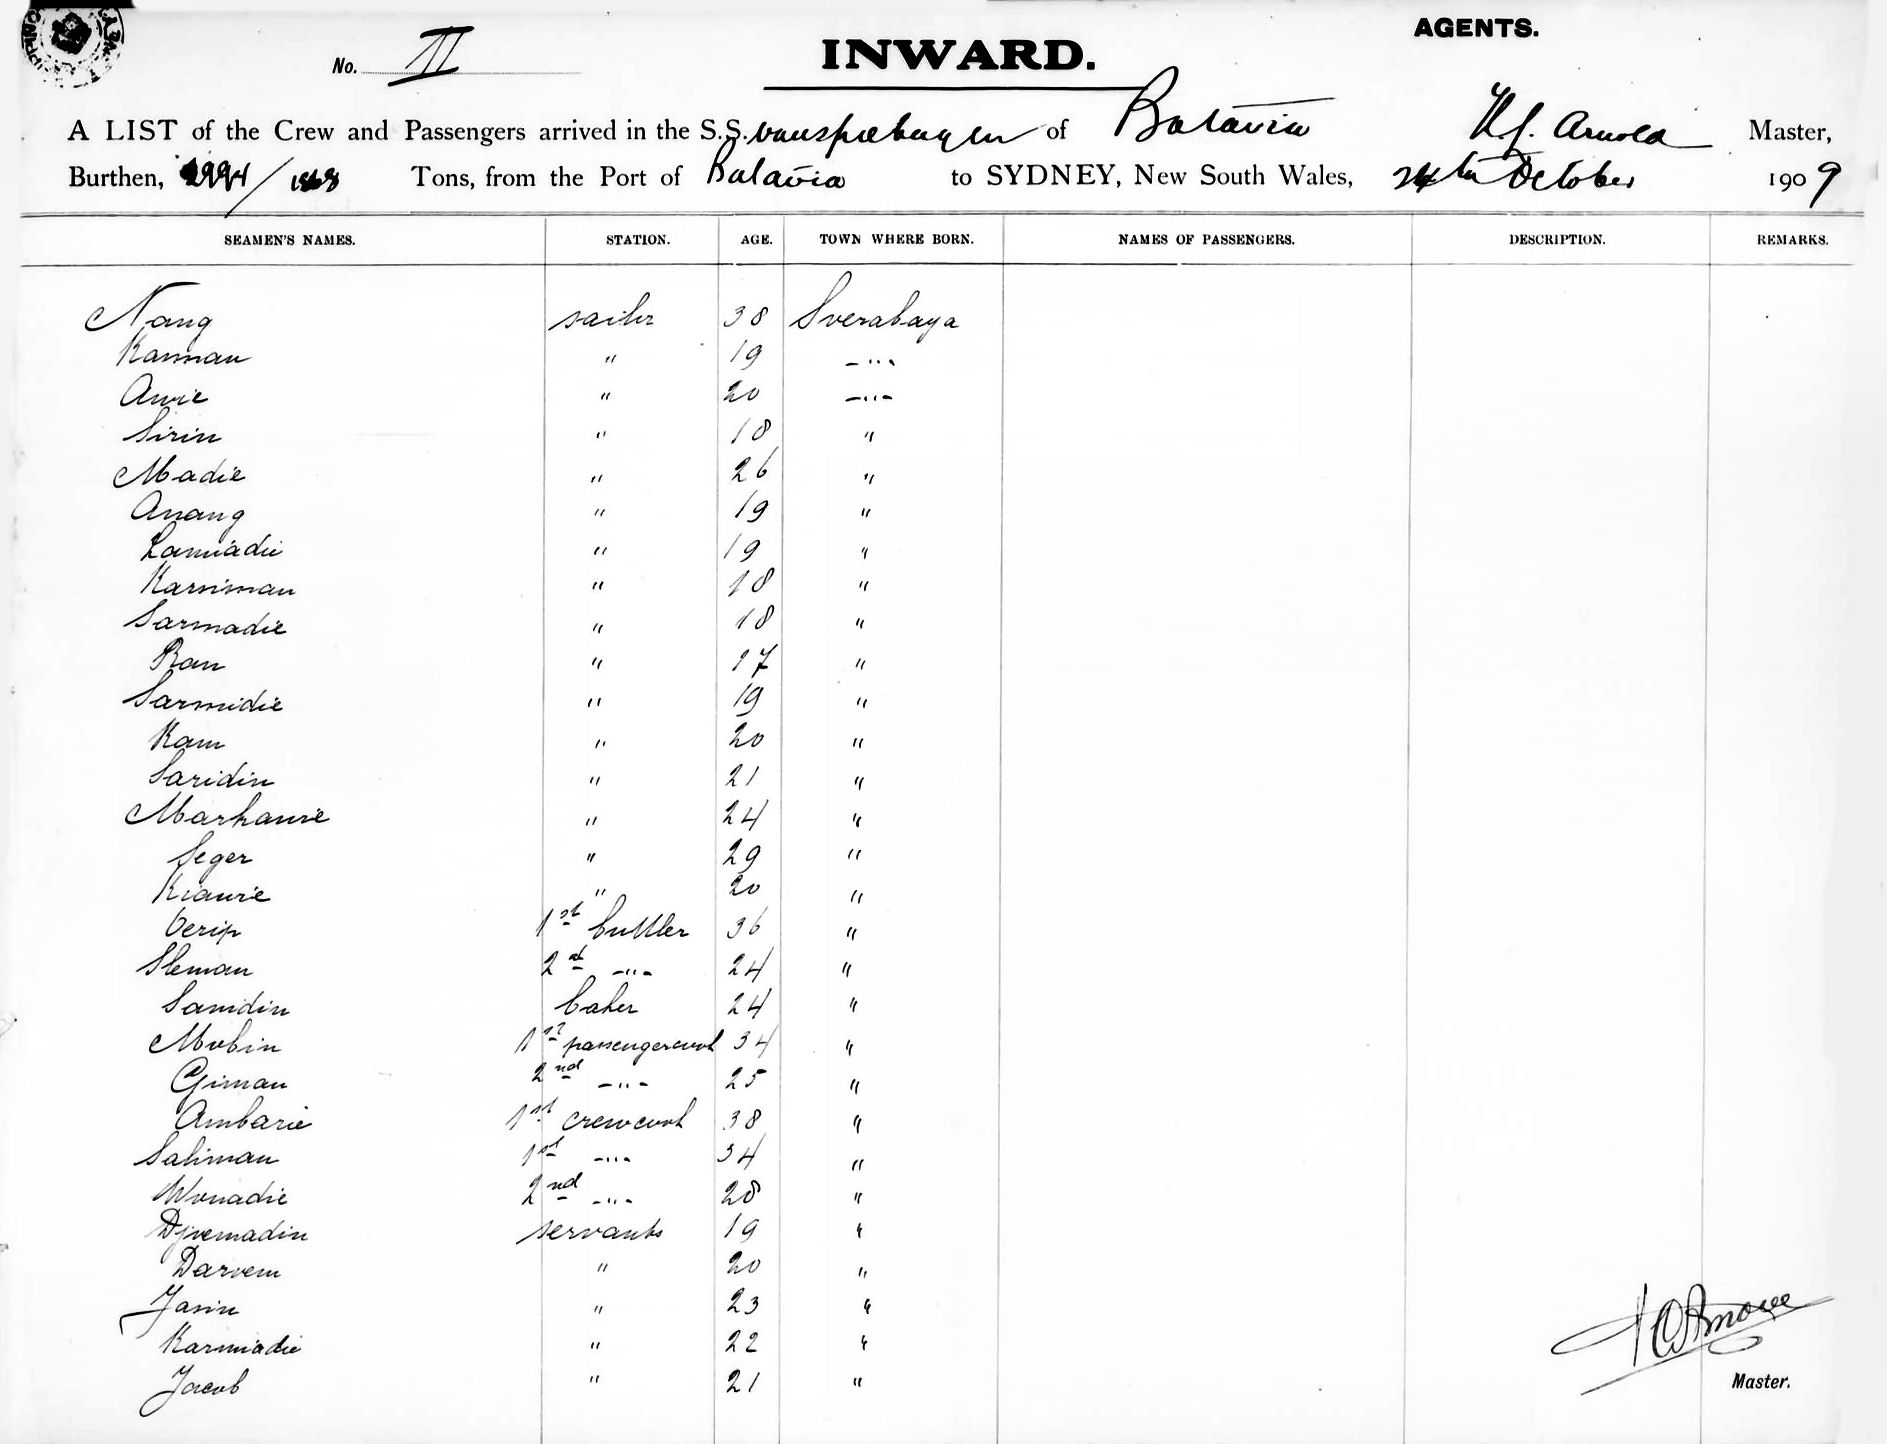 AGENTS.
No. II INWARD.
A LIST of the Crew and Passengers arrived in the S.S. van Spilbergen of Batavia H.J. Arnold Master,
Burthen, 2994/1868 Tons, from the Port of Batavia to SYDNEY, New South Wales, 24th October 1909
SEAMEN'S NAMES. STATION. AGE. TOWN WHERE BORN. NAMES OF PASSENGERS. DESCRIPTION. REMARKS.
Nang sailor 38 Soerabaya
Karman " 19 -"-
Amie " 20 -"-
Sirin " 18 "
Madie " 26 "
Anang " 19 "
Lamiadie " 19 "
Karniman " 18 "
Sarmadie " 18 "
Ran " 17 "
Sarmidie " 19 "
Kam " 20 "
Saridin " 21 "
Markawie " 24 "
Seger " 29 "
Kiawie " 20 "
Oerip 1st buttler 36 "
Sleman 2nd -"- 24 "
Samidin baker 24 "
Mobin 1st passengercook 34 "
Giman 2nd -"- 25 "
Ambarie 1st crewcook 38 "
Saliman 1st -"- 34 "
Wonadie 2nd -"- 28 "
Djoemadin servants 19 "
Daroem " 20 "
Jasin " 23 "
Karmiadie " 22 "
Jacob " 21 "
Master.